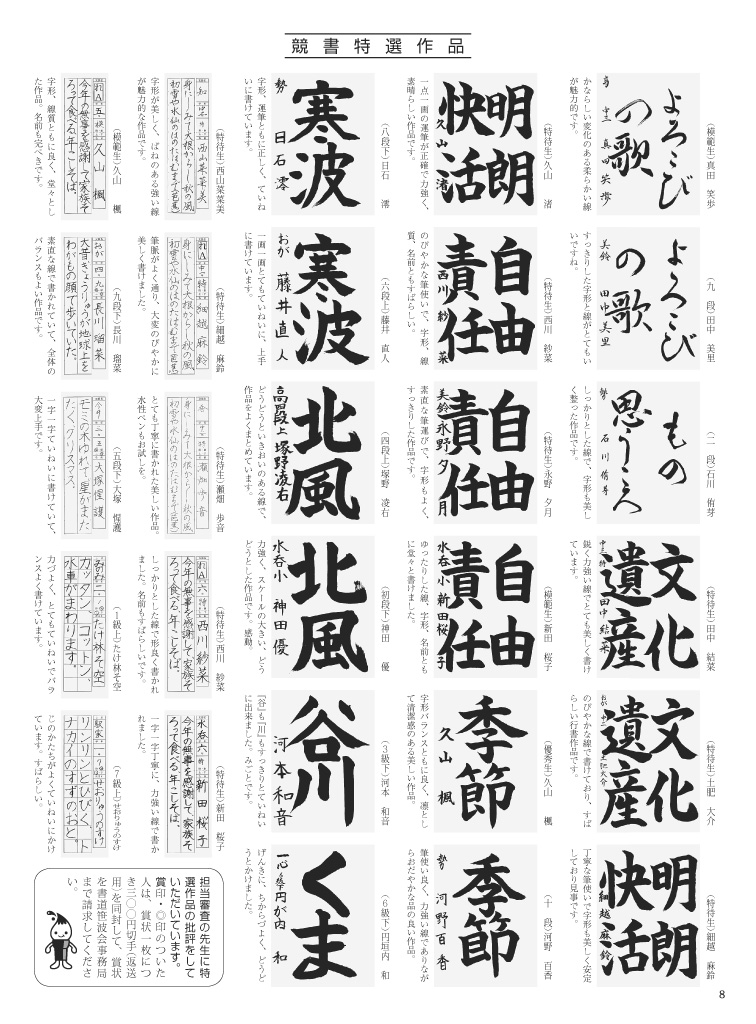 競書特選作品
よろこび
の歌
(模範生)真田 笑歩
かならしい変化のある柔らかい線
が魅力的です。
よろこび
の歌
美鈴 田中美里
(九 段)田中 美里
すっきりした字形と線がとてもい
いですね。
もの
思うころ
(二 段)石川 侑芽
しっかりとした線で、字形も美し
く整った作品です。
文化
遺産
(特待生)田中 結菜
鋭く力強い線でとても美しく書け
ています。
文化
遺産
(特待生)土肥 大介
のびやかな線で書けており、すば
らしい行書作品です。
明朗
快活
細越麻鈴
(特待生)細越 麻鈴
丁寧な筆使いで字形も美しく安定
しており見事です。
明朗
快活
久山渚
(特待生)久山 渚
一点一画の運筆が正確で力強く、
素晴らしい作品です。
自由
責任
西川紗菜
(特待生)西川 紗菜
のびやかな筆使いで、字形、線
質、名前ともすばらしい。
自由
責任
美鈴 永野夕月
(特待生)永野 夕月
素直な筆運びで、字形もよく、
すっきりした作品です。
自由
責任
水呑小 新田桜子
(模範生)新田 桜子
ゆったりした線、字形、名前とも
に堂々と書けました。
季節
久山楓
(優秀生)久山 楓
字形バランスともに良く、凛とし
て清潔感のある美しい作品。
季節
勢 河野百香
(十 段)河野 百香
筆使い良く、力強い線でありなが
らおだやかな品の良い作品。
寒波
勢 日石澪
(八段下)日石 澪
字形、運筆ともに正しく、ていね
いに書けています。
寒波
おが 藤井直人
(六段上)藤井 直人
一画一画とてもていねいに、上手
に書けています。
北風
高四段上 塚野凌右
(四段上)塚野 凌右
どうどうといきおいのある線で、
作品をよくまとめています。
北風
水呑小 神田優
(初段下)神田 優
力強く、スケールの大きい、どう
どうとした作品です。感動。
谷川
河本和音
(3級下)河本 和音
『谷』も『川』もすっきりとていねい
に出来ました。みごとです。
くま
円が内 和
(6級下)円垣内 和
げんきに、ちからづよく、どうど
うとかけました。
身にしみて大根からし秋の風
初雪や水仙のはのたはむまで(芭蕉)
(特待生)西山菜菜美
字形が美しく、ばねのある強い線
が魅力的な作品です。
身にしみて大根からし秋の風
初雪や水仙のはのたはむまで(芭蕉)
(特待生)細越 麻鈴
筆脈がよく通り、大変のびやかに
美しく書けました。
身にしみて大根からし秋の風
初雪や水仙のはのたはむまで(芭蕉)
(特待生)瀬畑 歩音
とても丁寧に書かれた美しい作品。
水性ペンもお試しを。
西川紗菜
今年の無事を感謝して家族そ
ろって食べる年こしそば。
(特待生)西川 紗菜
しっかりとした線で形良く書かれ
ました。名前もすばらしいです。
水呑 六 新田桜子
今年の無事を感謝して家族そ
ろって食べる年こしそば。
(特待生)新田 桜子
一字一字丁寧に、力強い線で書か
れました。
久山楓
今年の無事を感謝して家族そ
ろって食べる年こしそば。
(模範生)久山 楓
字形、線質ともに良く、堂々とし
た作品。名前も完ぺきです。
おが 四 長川瑠菜
大昔きょうりゅうが地球上を
わがもの顔で歩いていた。
(九段下)長川 瑠菜
素直な線で書かれていて、全体の
バランスもよい作品です。
大塚惺護
モミの木ゆれて星がまた
たくクリスマス。
(五段下)大塚 惺護
一字一字ていねいに書けていて、
大変上手です。
たけ林そ空
カッタン、コットン、
水車がまわります。
(1級上)たけ林そ空
力づよく、とてもていねいでバラ
ンスよく書けています。
せおりゅうのすけ
リンリンとひびく、ト
ナカイのすずのおと。
(7級上)せおりゅうのすけ
じのかたちがよくていねいにかけ
ています。すばらしい。
担当審査の先生に特
選作品の批評をして
いただいています。
賞印・◎印のついた
人は、賞状一枚につ
き三〇〇円切手(返送
用)を同封して、賞状
を書道笹波会事務局
まで請求してくださ
い。
8